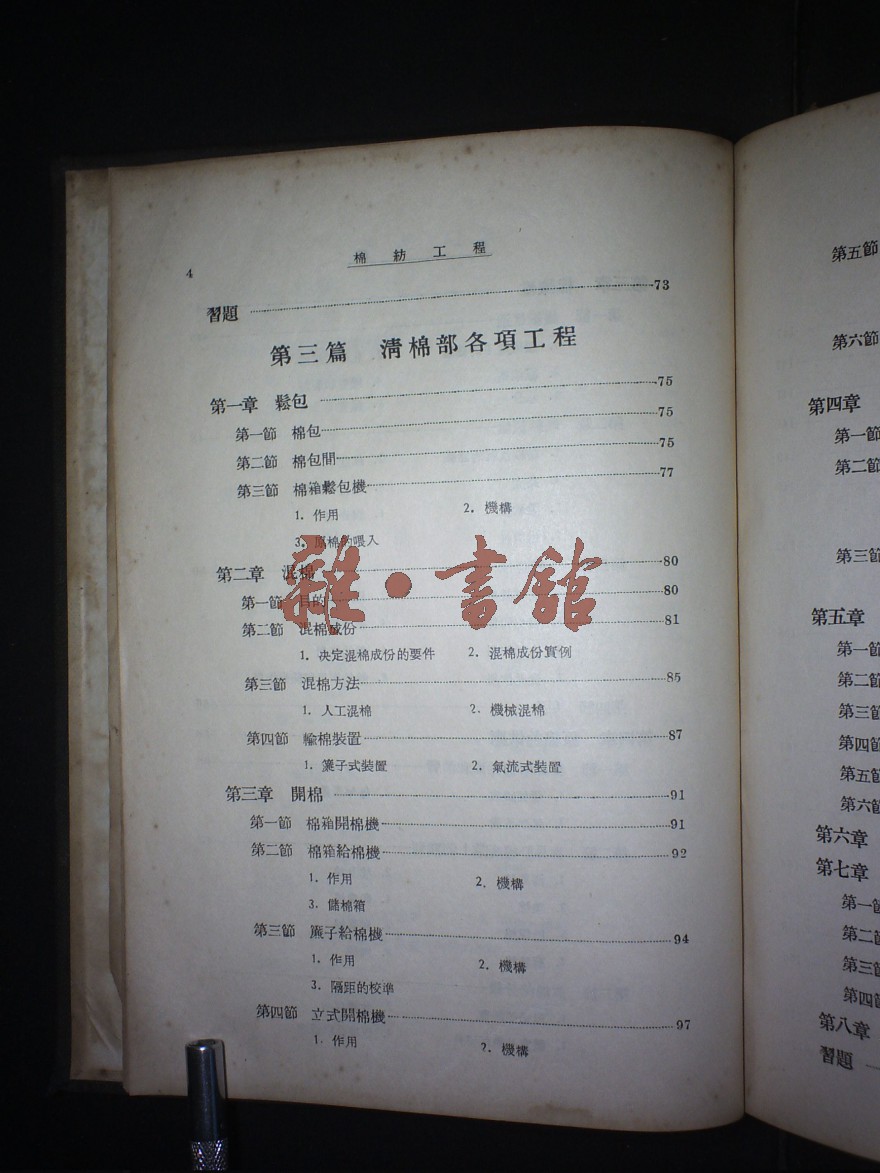 棉紡工程
4
習題 73
第三篇 清棉部各項工程
第一章 鬆包 75
第一節 棉包 75
第二節 棉包間 75
第三節 棉箱鬆包機 77
1. 作用 2. 機構
3. 原棉的喂入
第二章 混棉 80
第一節 目的 80
第二節 混棉成份 81
1. 决定混棉成份的要件 2. 混棉成份實例
第三節 混棉方法 85
1. 人工混棉 2. 機械混棉
第四節 輸棉裝置 87
1. 簾子式裝置 2. 氣流式裝置
第三章 開棉 91
第一節 棉箱開棉機 91
第二節 棉箱給棉機 92
1. 作用 2. 機構
3. 儲棉箱
第三節 簾子給棉機 94
1. 作用 2. 機構
3. 隔距的校準
第四節 立式開棉機 97
1. 作用 2. 機構
雜·書館
第五節
第六節
第四章
第一節
第二節
第三節
第五章
第一節
第二節
第三節
第四節
第五節
第六節
第六章
第七章
第一節
第二節
第三節
第四節
第八章
習題